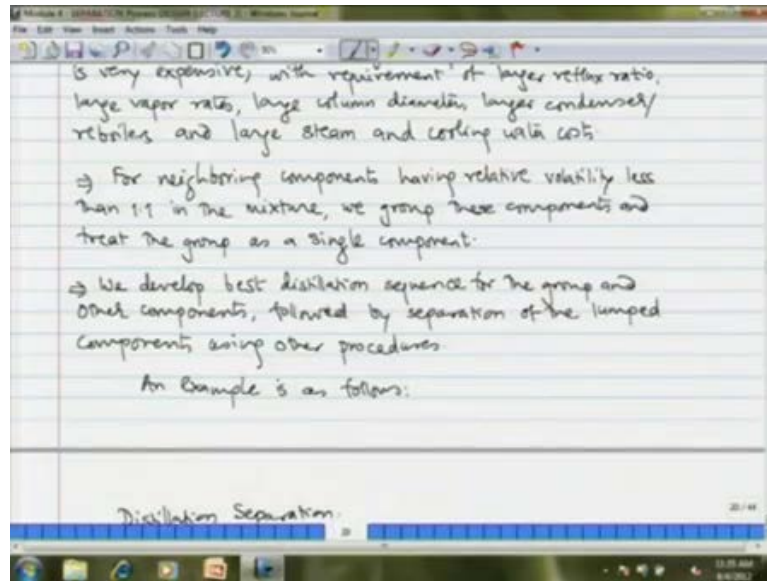 Module 4 - SEPARATION Process DESIGN (LECTURE 2) - Windows Journal
File Edit View Insert Actions Tools Help
is very expensive, with requirement of larger reflux ratio,
large vapor rates, large column diameter, larger condenser/
reboilers and large steam and cooling water costs
⇒ For neighboring components having relative volatility less
than 1.1 in the mixture, we group these components and
treat the group as a single component.
⇒ We develop best distillation sequence for the group and
other components, followed by separation of the lumped
components using other procedures.
An Example is as follows:
Distillation Separation.
20 / 44
11:35 AM